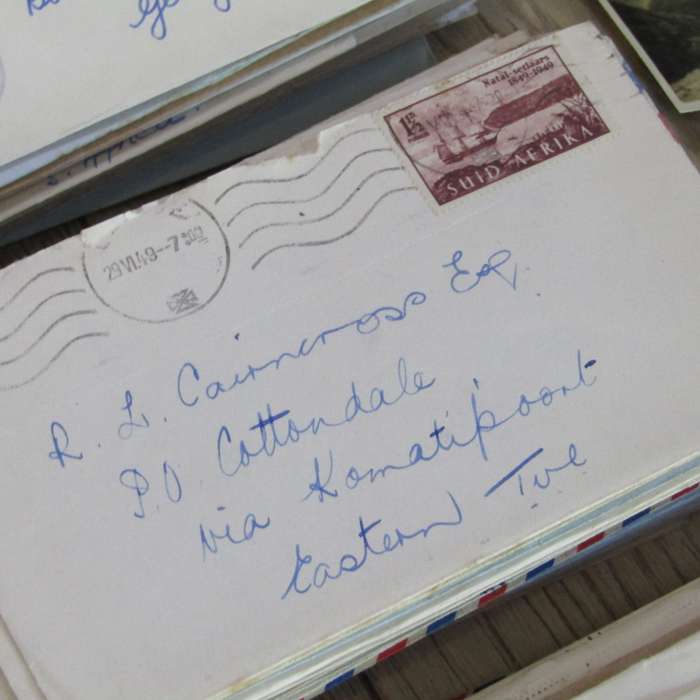 Natal-setlaars
1849-1949
1½D
SUID-AFRIKA
29 VI 49--7 30
R. L. Cairncross Esq.
P.O. Cottondale
via Komatipoort
Eastern Tvl